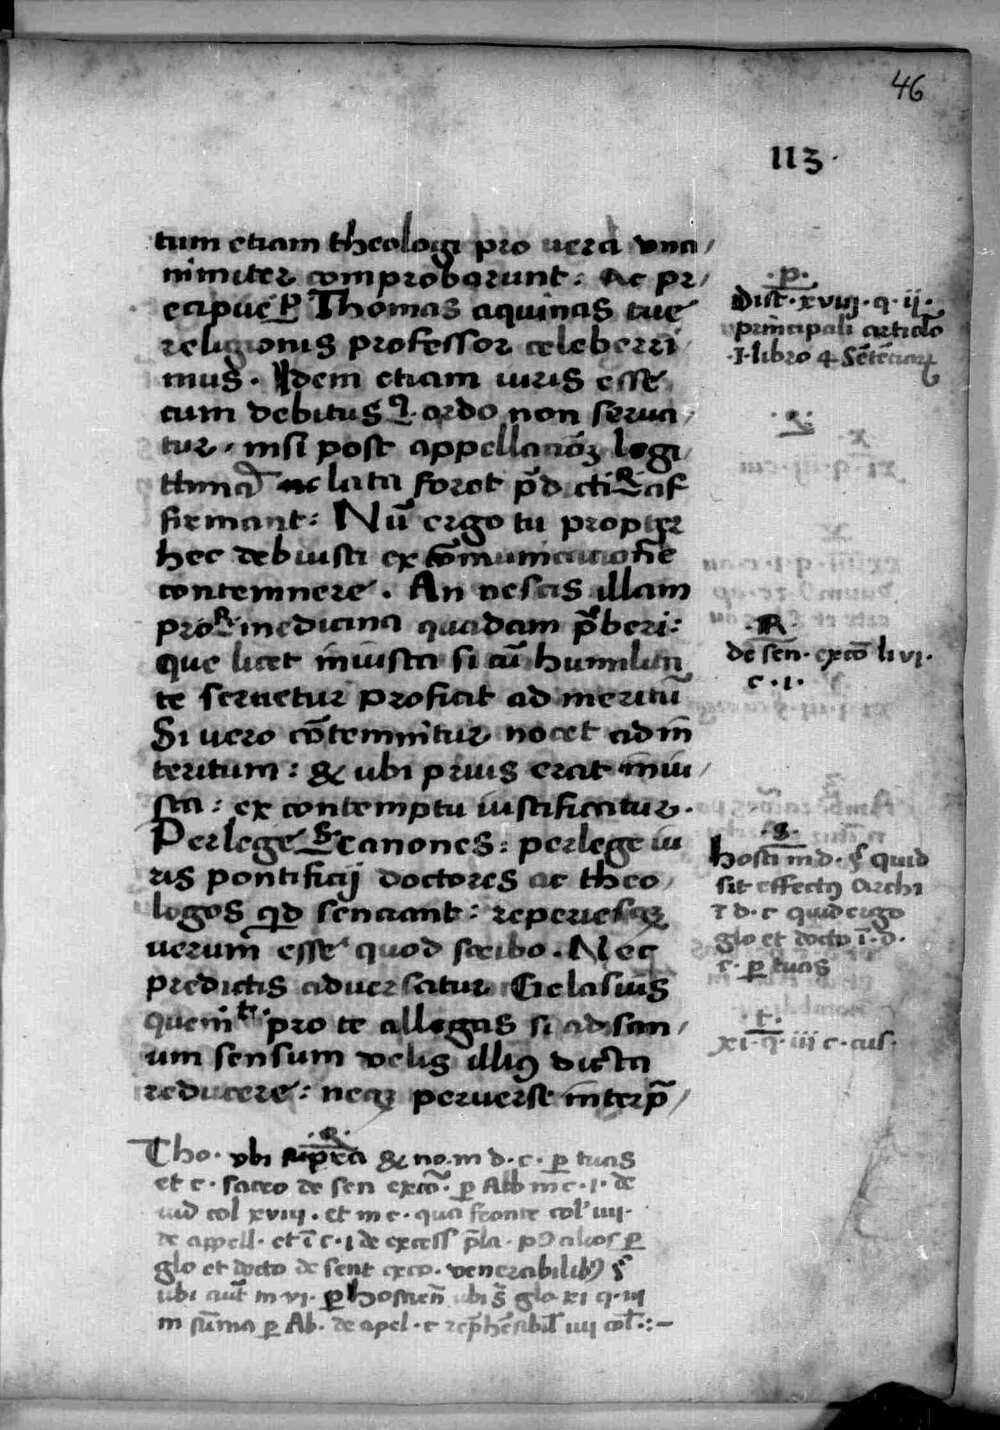 46
113.
tum etiam theologi pro vera vna/
nimiter comproboarunt: ac pr/
ecipue p Thomas aquinas tue
religionis professor celeberri
mus. Idem etiam iuris esse
cum debitus q ordo non serua/
tur, nisi post appellacōꝫ legi/
ttima lata foret p̄dicti R af
firmant: Nū ergo tu propter
hec debuisti excōmunicacionē
contemnere. An nescis illam
pro R medicina quadam p̄beri:
que licet iniusta si cū humilita
te seruetur proficit ad meritū
Si vero cōtemnitur nocet ad in
teritum: & ubi prius erat iniu/
sta: ex contemptu iustificatur.
Perlege s canones: perlege iu
ris pontificij doctores ac theo/
logos qd senciant: reperiesqꝫ
verum esse quod scribo. Nec
predictis aduersatur Gelasius
quem t pro te allegas si ad san/
um sensum velis illiꝰ dicta
reducere: neqꝫ peruerse interp̄/
.p.
Dist. xviij. q. ij.
principali articlo
.I. libro 4 Sētēciaꝝ
.q.
.R.
de sen. excō li vi.
c. i.
.s.
hosti in d. § quid
sit effectꝰ Archi
ī d. c quid ergo
glo et docto ī. d.
c. ꝑ tuas
.t.
xi. q. iii c. cui.
.R.
Tho. vbi supra & no. in d. c. ꝑ tuas
et c. sacro de sen excō. ꝑ Abb in c. I. de
iud col xviij. et in c. qua fronte col' iiij.
de appell. et ī c. I de excess p̄la. ꝑ
glo et docto de sent exco. venerabilibꝰ §
ubi aut in vi. ꝑ hostien ubi s̄ glo xi q. iij
in sūma ꝑ Ab. de apel. c rep̄hēsibil iiij col.:-